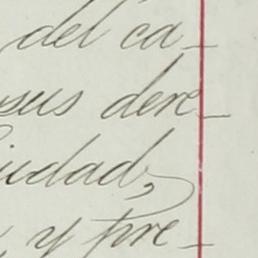 del ca-
sus dere-
iudad,
y pre-